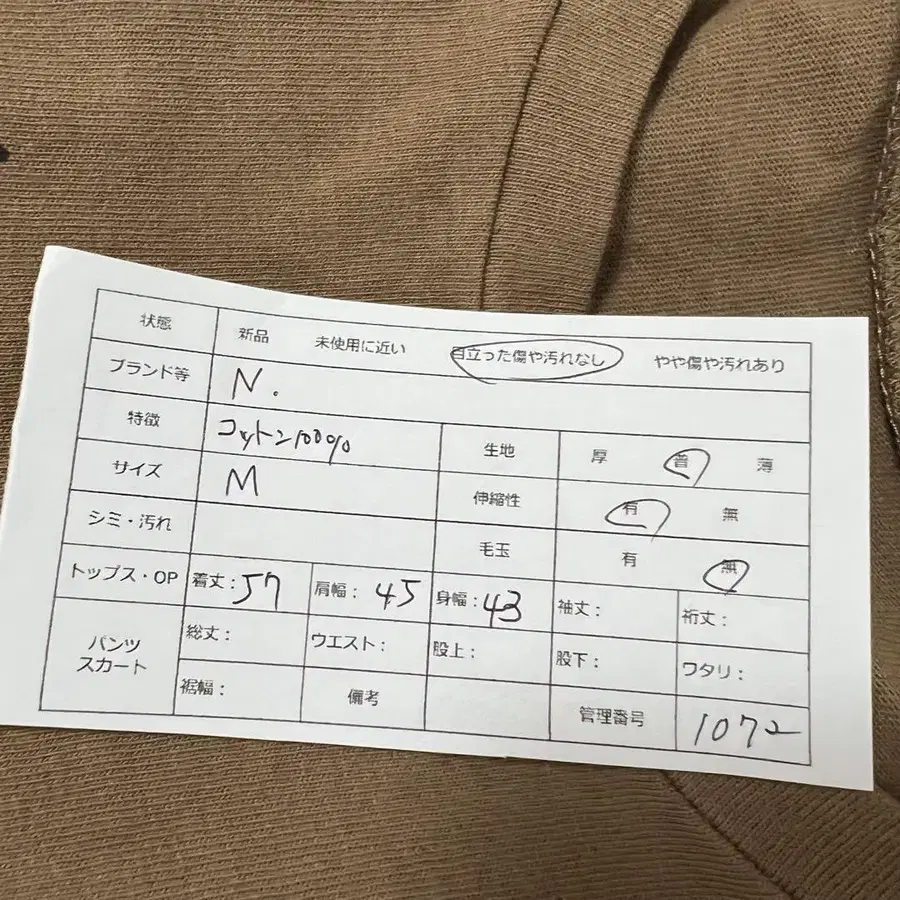 状態 新品 未使用に近い 目立った傷や汚れなし やや傷や汚れあり
ブランド等 N.
特徴 コットン100% 生地 厚 普 薄
サイズ M 伸縮性 有 無
シミ・汚れ 毛玉 有 無
トップス・OP 着丈：57 肩幅：45 身幅：43 袖丈： 裄丈：
パンツ スカート 総丈： ウエスト： 股上： 股下： ワタリ：
裾幅： 備考 管理番号 1072